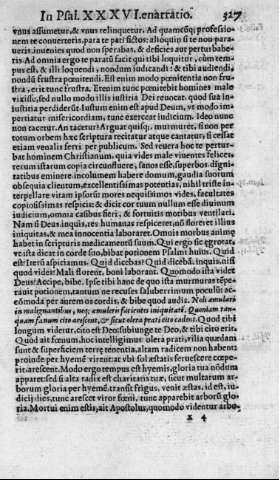 In Psal. XXXVI. enarratio. 927
vnus assumetur, & vnus relinquetur. Ad quamcũq; professio-
nem te conuerteris, para te pati fictos: alioqui si te non para-
ueris, inuenies quod non sperabas, & deficies aut pertur babe-
ris. Ad omnia ergo te paratũ facit qui tibi loquitur, cùm tem-
pus est, & illi loquendi, nondũ iudicandi: & tibi audiendi,
nondũ frustrà pœnitendi. Est enim modo pœnitentia non fru-
stra, erit tunc frustra. Etenim tunc pœnitebit homines malè
vixisse, sed nullo modo illis iustitia Dei reuocet. quod sua in-
iustitia perdiderũt. Iustum enim est apud Deum, vt modo im-
pertiatur misericordiam, tunc exerceat iudicium. Ideo nunc
non tacetur. An tacetur? Arguat quisq;, murmuret, si non per
totum orbem hæc scriptura recitatur atque cantatur; si cessat
etiam venalis ferri per publicum. Sed reuera hoc te pertur-
bat hominem Christianum, quia vides malè viuentes felices
rerum istarum copia circunfluere, sanos esse, superbos digni-
tatibus eminere incolumem habere domum, gaudia suorum
obsequia clientum, excellentissimas potentias, nihil triste in-
terpellare vitam ipsorũ: mores nequissimos vides, facultates
copiosissimas respicis: & dicit cor tuum nullum esse diuinum
iudicium, omnia casibus fieri, & fortuitis motibus ventilari.
Nam si Deus inquis, res humanas respiceret, nũ floreret illius
iniquitas, & mea innocentia laboraret. Omnis morbus animę
habet in scripturis medicamentũ suum. Qui ergo sic ęgrotat
vt ista dicat in corde suo, bibat potionem Psalmi huius. Quid
est? Iterũ aspiciamus. Quid dicebas? Quid dicebã, inquis, nisi
quod vides? Mali florent, boni laborant. Quomodo ista videt
Deus? Accipe, bibe. Ipse tibi hanc de quo ista murmuras tẽpe-
rauit potionem, tantum ne recuses saluberrimum poculum: ac-
cõmoda per aurem os cordis, & bibe quod audis. Noli æmulari
in malignantibus, neq; æmuleris facientes iniquitatẽ. Quoniam tan-
quam fœnum citò arescent, & sicut olera prati citò cadent. Quod tibi
longum videtur, citò est Deo: subiunge te Deo, & tibi citò erit.
Quod ait fœnum, hoc intelligimus olera prati, vilia quædam
sunt & superficiem terrę tenentia, altam radicem non habent:
proinde per hyemẽ virent: at vbi sol æstatis feruescere cœpe-
rit arescent. Modo ergo tempus est hyemis, gloria tua nõdum
apparet: sed si alta radix est charitatis tuæ, sicut multarum ar-
borum gloria per hyemẽ: transit frigus, venit æstas, id est, iu-
dicij dies, tunc arescet viror fœni, tunc apparebit arborũ glo-
ria. Mortui enim estis, ait Apostolus, quomodo videntur arbo-
x 4